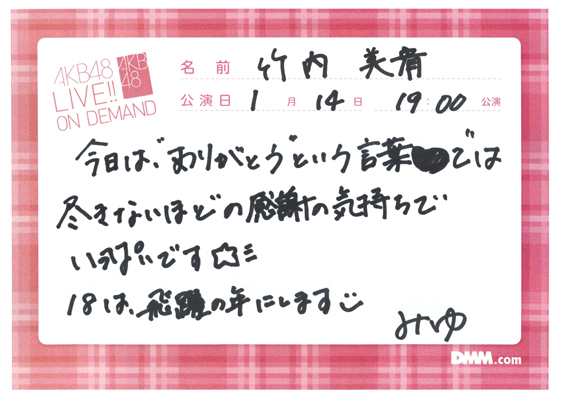 AKB48
LIVE!!
ON DEMAND
AKB
48
名前 竹内 美宥
公演日 1月 14日 19:00 公演
今日は、"ありがとう"という言葉では
尽きないほどの感謝の気持ちで
いっぱいです☆ミ
18は、飛躍の年にします
みゆ
DMM.com